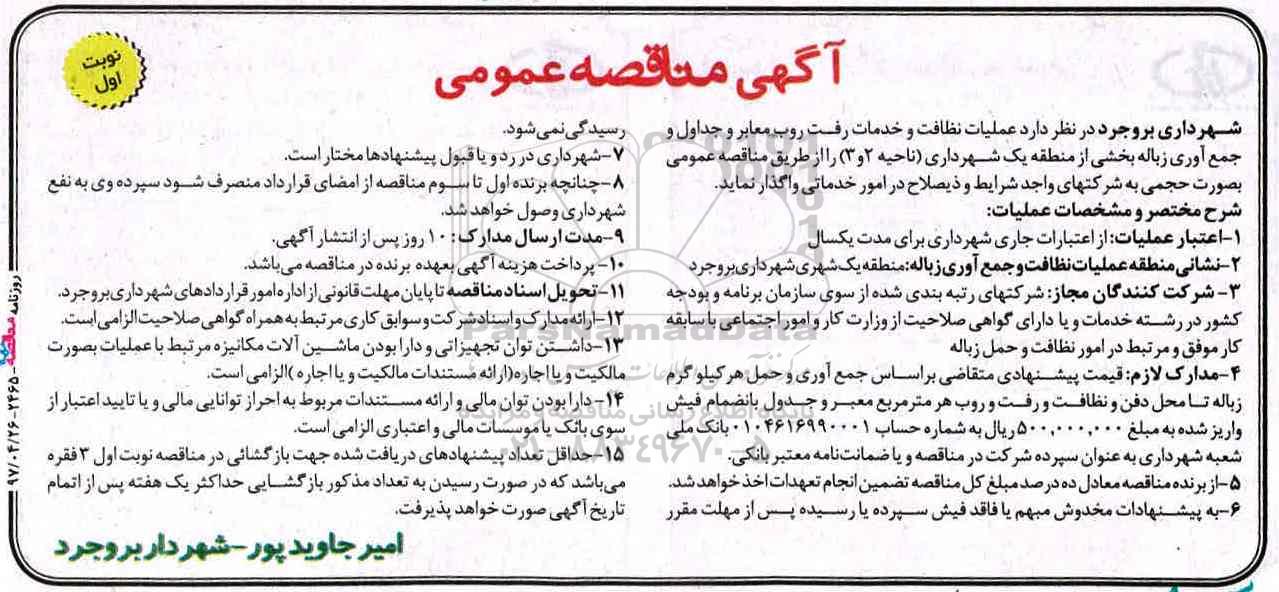 آگهی مناقصه عمومی
نوبت
اول
شهرداری بروجرد در نظر دارد عملیات نظافت و خدمات رفت روب معابر و جداول و
جمع آوری زباله بخشی از منطقه یک شهرداری (ناحیه ۲و۳) را از طریق مناقصه عمومی
بصورت حجمی به شرکتهای واجد شرایط و ذیصلاح در امور خدماتی واگذار نماید.
شرح مختصر و مشخصات عملیات:
۱-اعتبار عملیات: از اعتبارات جاری شهرداری برای مدت یکسال
۲-نشانی منطقه عملیات نظافت و جمع آوری زباله: منطقه یک شهری شهرداری بروجرد
۳- شرکت کنندگان مجاز: شرکتهای رتبه بندی شده از سوی سازمان برنامه و بودجه
کشور در رشته خدمات و یا دارای گواهی صلاحیت از وزارت کار و امور اجتماعی با سابقه
کار موفق و مرتبط در امور نظافت و حمل زباله
۴-مدارک لازم: قیمت پیشنهادی متقاضی براساس جمع آوری و حمل هر کیلو گرم
زباله تا محل دفن و نظافت و رفت و روب هر مترمربع معبر و جدول بانضمام فیش
واریز شده به مبلغ ۵۰۰,۰۰۰,۰۰۰ ریال به شماره حساب ۰۱۰۴۶۱۶۹۹۰۰۰۱ بانک ملی
شعبه شهرداری به عنوان سپرده شرکت در مناقصه و یا ضمانت‌نامه معتبر بانکی.
۵-از برنده مناقصه معادل ده درصد مبلغ کل مناقصه تضمین انجام تعهدات اخذ خواهد شد.
۶-به پیشنهادات مخدوش مبهم یا فاقد فیش سپرده یا رسیده پس از مهلت مقرر
رسیدگی نمی‌شود.
۷-شهرداری در رد و یا قبول پیشنهادها مختار است.
۸-چنانچه برنده اول تا سوم مناقصه از امضای قرارداد منصرف شود سپرده وی به نفع
شهرداری وصول خواهد شد.
۹-مدت ارسال مدارک: ۱۰ روز پس از انتشار آگهی.
۱۰-پرداخت هزینه آگهی بعهده برنده در مناقصه می‌باشد.
۱۱-تحویل اسناد مناقصه تا پایان مهلت قانونی از اداره امور قراردادهای شهرداری بروجرد.
۱۲-ارائه مدارک و اسناد شرکت و سوابق کاری مرتبط به همراه گواهی صلاحیت الزامی است.
۱۳-داشتن توان تجهیزاتی و دارا بودن ماشین آلات مکانیزه مرتبط با عملیات بصورت
مالکیت و یا اجاره(ارائه مستندات مالکیت و یا اجاره )الزامی است.
۱۴-دارا بودن توان مالی و ارائه مستندات مربوط به احراز توانایی مالی و یا تایید اعتبار از
سوی بانک یا موسسات مالی و اعتباری الزامی است.
۱۵-حداقل تعداد پیشنهادهای دریافت شده جهت بازگشائی در مناقصه نوبت اول ۳ فقره
می‌باشد که در صورت رسیدن به تعداد مذکور بازگشایی حداکثر یک هفته پس از اتمام
تاریخ آگهی صورت خواهد پذیرفت.
امیر جاوید پور-شهردار بروجرد
روزنامه مناقصه -۲۴۶۵ -۹۷/۰۴/۲۶
ParsNamadData
پایگاه اطلاع رسانی مناقصه و مزایده
۰۲۱-۸۸۳۴۹۶۷۰-۵